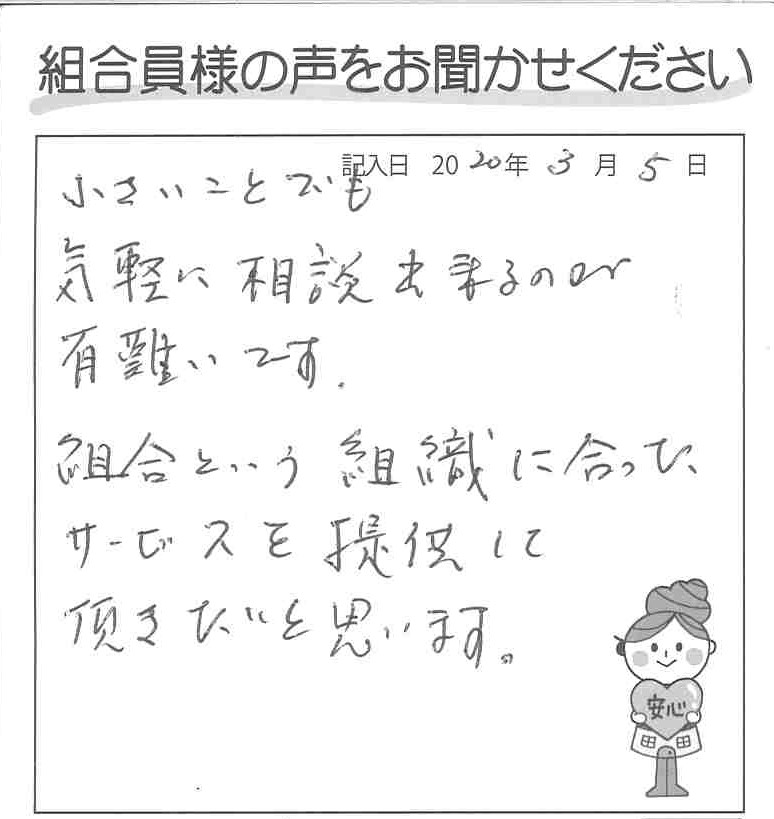 組合員様の声をお聞かせください
記入日 2020年 3月 5日
小さいことでも
気軽に相談出来るのが
有難いです.
組合という組織に合った、
サービスを提供して
頂きたいと思います。
安心